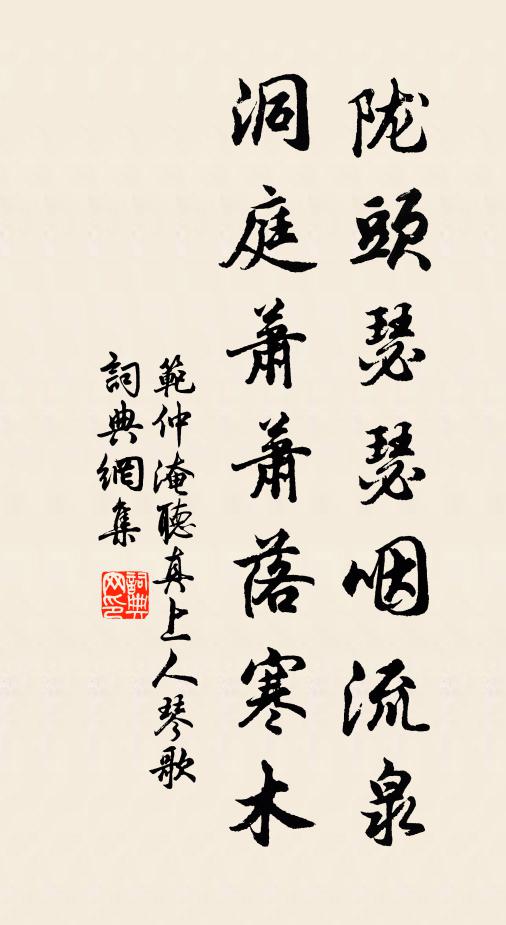 陇頭瑟瑟咽流泉
洞庭蕭蕭落寒木
範仲淹聽真上人琴歌
詞典網集
詞典网印